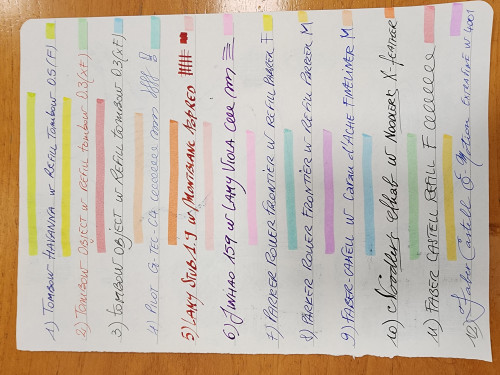 1) TOMBOW HAVANNA W REFILL TOMBOW 0.5 (F)
2) TOMBOW OBJECT W REFILL TOMBOW 0.3 (XF)
3) TOMBOW OBJECT W REFILL TOMBOW 0.3 (XF)
4) PILOT G-TEC-C4
5) LAMY STUB 1.9 W MONTBLANC RED
6) JINHAO 159 W LAMY VIOLA
7) PARKER POWER FRONTIER W REFILL PARKER F
8) PARKER POWER FRONTIER W REFILL PARKER M
9) FABER-CASTELL W CARAN D'ACHE FINELINER M
10) Noodlers W NOODLERS X-FEATHER
11) FABER CASTELL REFILL F
12) Faber Castell W 4001